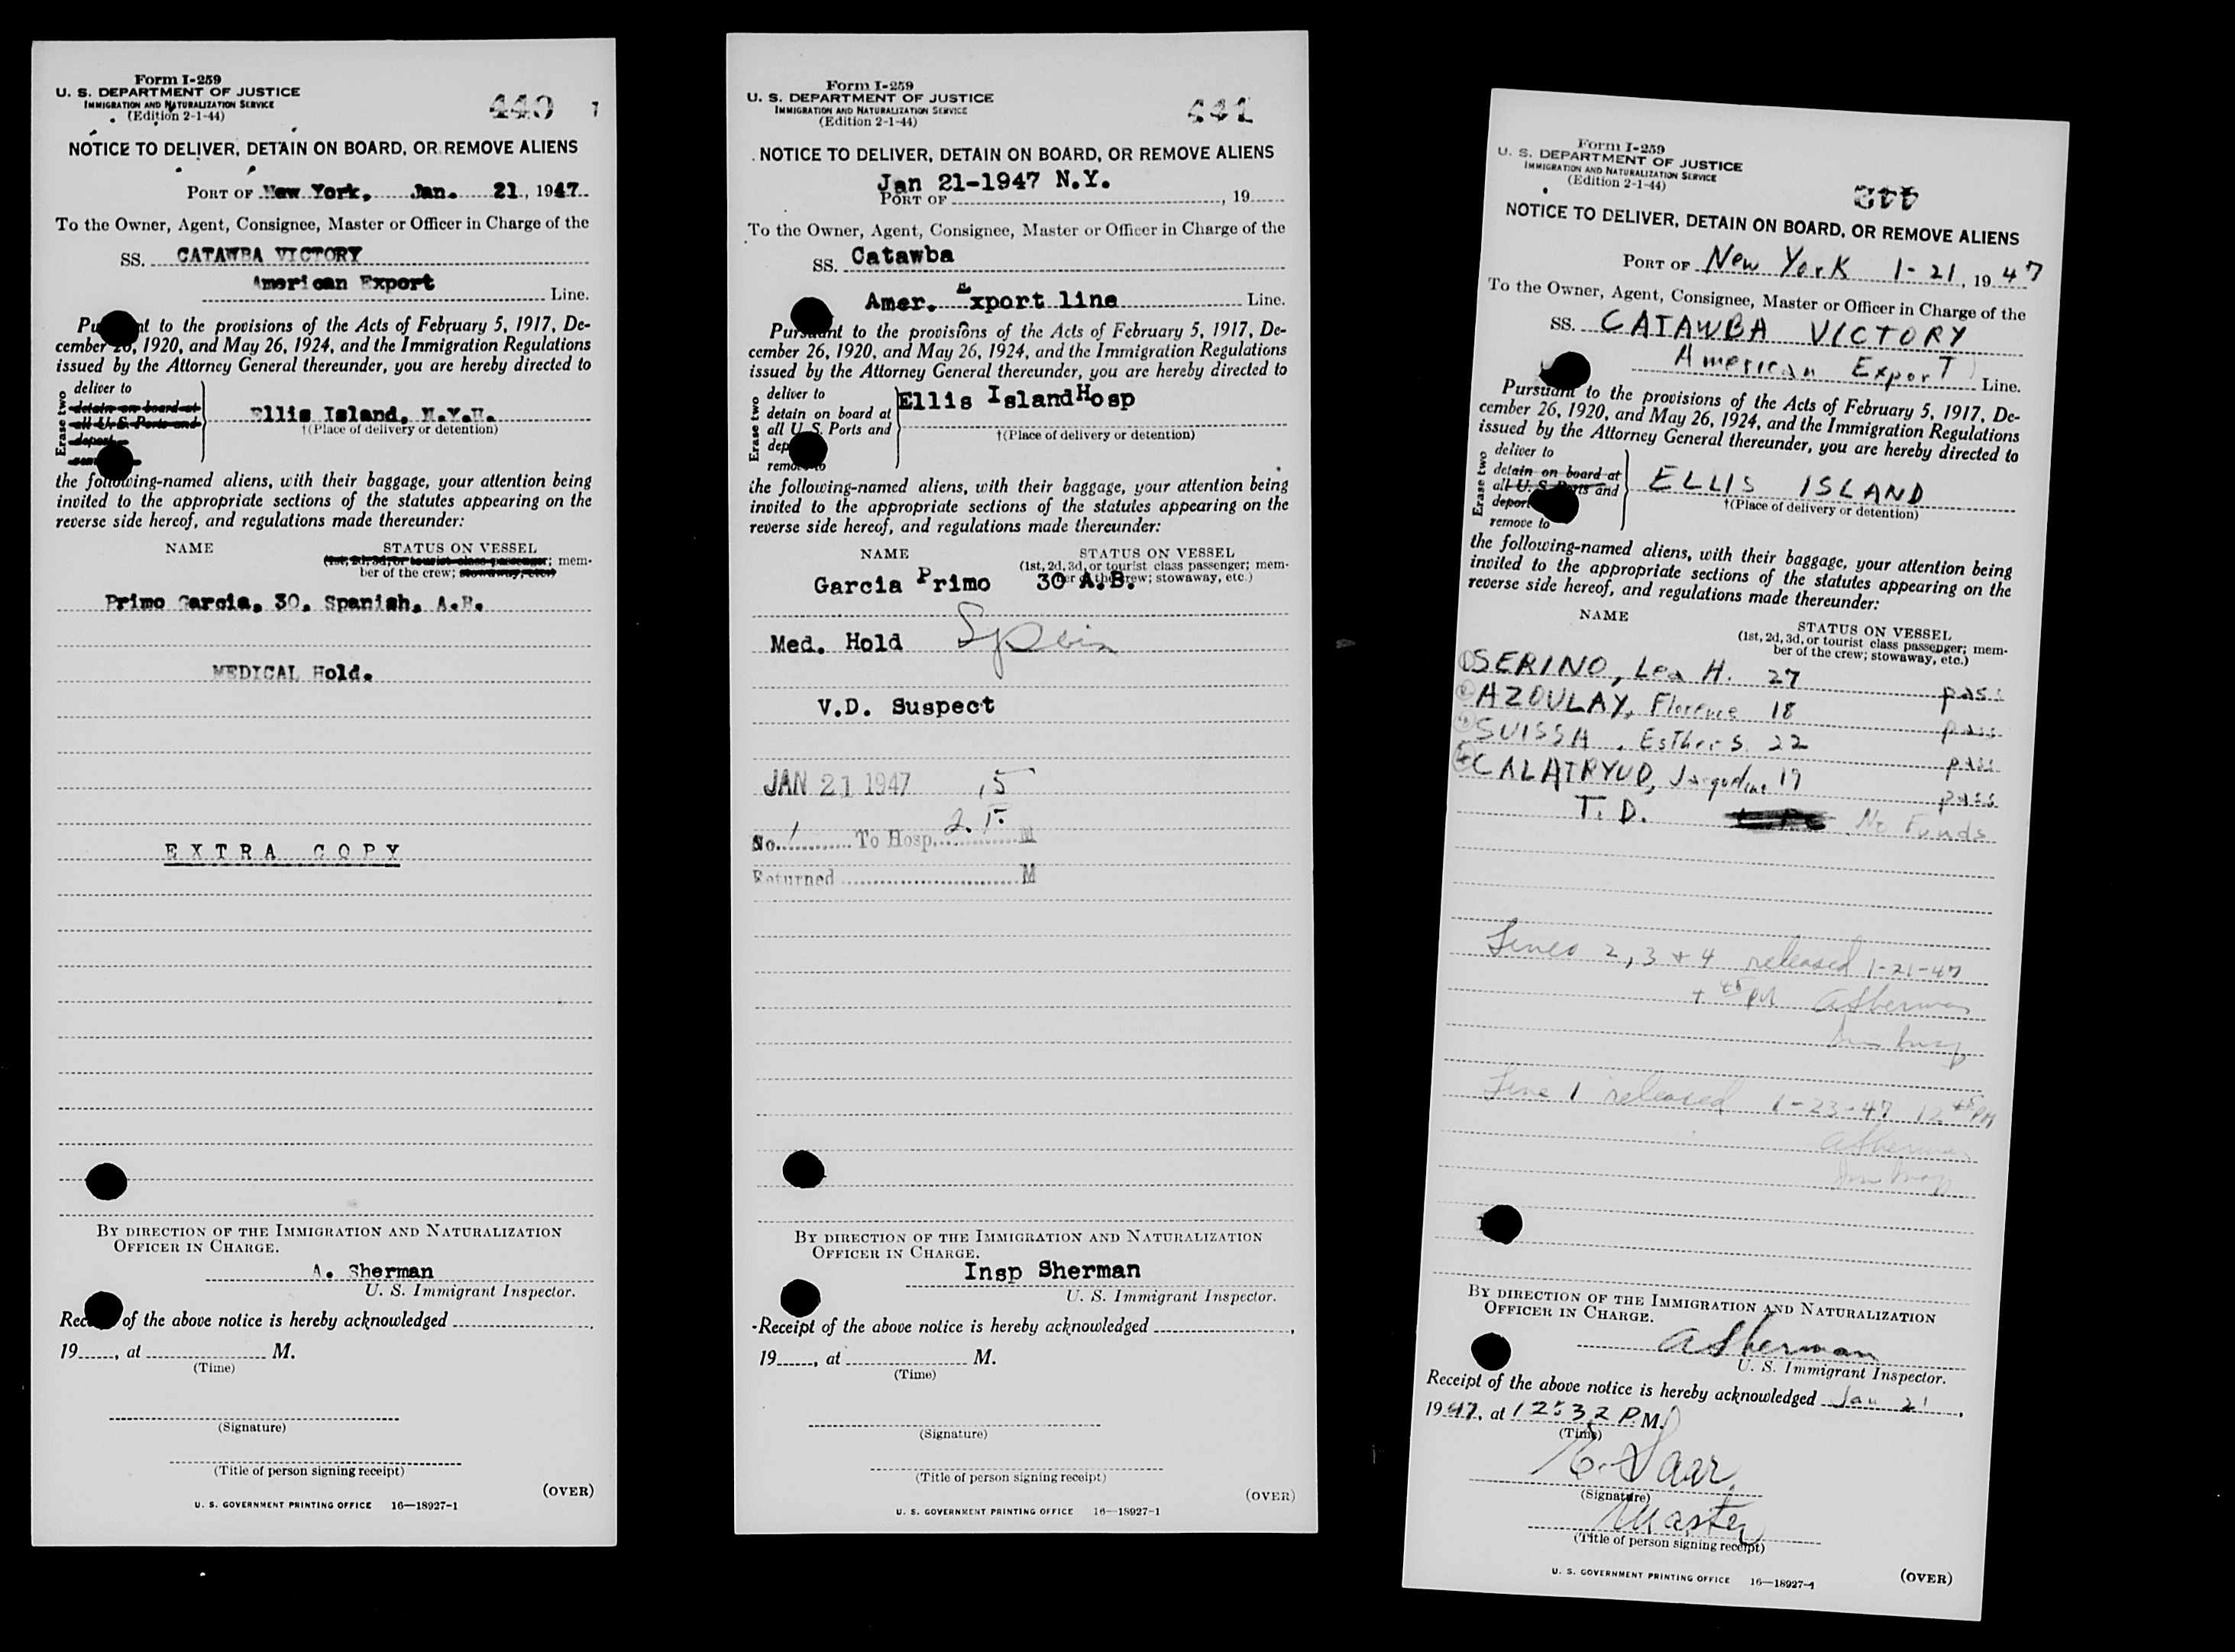 Form I-259
U. S. DEPARTMENT OF JUSTICE
IMMIGRATION AND NATURALIZATION SERVICE
(Edition 2-1-44)
440
NOTICE TO DELIVER, DETAIN ON BOARD, OR REMOVE ALIENS
PORT OF New York, Jan. 21, 1947
To the Owner, Agent, Consignee, Master or Officer in Charge of the
SS. CATAWBA VICTORY
American Export Line.
to the provisions of the Acts of February 5, 1917, De-
cember 26, 1920, and May 26, 1924, and the Immigration Regulations
issued by the Attorney General thereunder, you are hereby directed to
Erase two
deliver to
detain on board at
all U. S. Ports and
deport
Ellis Island, N.Y.H.
†(Place of delivery or detention)
the following-named aliens, with their baggage, your attention being
invited to the appropriate sections of the statutes appearing on the
reverse side hereof, and regulations made thereunder:
NAME STATUS ON VESSEL
(1st, 2d, 3d, or tourist class passenger; mem-
ber of the crew; stowaway, etc.)
Primo Garcia, 30, Spanish, A.B.
MEDICAL Hold.
EXTRA COPY
BY DIRECTION OF THE IMMIGRATION AND NATURALIZATION
OFFICER IN CHARGE.
A. Sherman
U. S. Immigrant Inspector.
of the above notice is hereby acknowledged
19 , at M.
(Time)
(Signature)
(Title of person signing receipt)
(OVER)
U. S. GOVERNMENT PRINTING OFFICE 16—18927-1
Form I-259
U. S. DEPARTMENT OF JUSTICE
IMMIGRATION AND NATURALIZATION SERVICE
(Edition 2-1-44)
441
NOTICE TO DELIVER, DETAIN ON BOARD, OR REMOVE ALIENS
Jan 21-1947 N.Y.
PORT OF , 19
To the Owner, Agent, Consignee, Master or Officer in Charge of the
SS. Catawba
Amer. Export line Line.
Pursuant to the provisions of the Acts of February 5, 1917, De-
cember 26, 1920, and May 26, 1924, and the Immigration Regulations
issued by the Attorney General thereunder, you are hereby directed to
Erase two
deliver to
detain on board at
all U. S. Ports and
remove to
Ellis Island Hosp
†(Place of delivery or detention)
the following-named aliens, with their baggage, your attention being
invited to the appropriate sections of the statutes appearing on the
reverse side hereof, and regulations made thereunder:
NAME STATUS ON VESSEL
(1st, 2d, 3d, or tourist class passenger; mem-
ber of the crew; stowaway, etc.)
Garcia Primo 30 A.B.
Med. Hold Spain
V.D. Suspect
JAN 21 1947 15
No. 1 To Hosp. 2. P. M
Returned M
BY DIRECTION OF THE IMMIGRATION AND NATURALIZATION
OFFICER IN CHARGE.
Insp Sherman
U. S. Immigrant Inspector.
Receipt of the above notice is hereby acknowledged
19 , at M.
(Time)
(Signature)
(Title of person signing receipt)
(OVER)
U. S. GOVERNMENT PRINTING OFFICE 16—18927-1
Form I-259
U. S. DEPARTMENT OF JUSTICE
IMMIGRATION AND NATURALIZATION SERVICE
(Edition 2-1-44)
NOTICE TO DELIVER, DETAIN ON BOARD, OR REMOVE ALIENS
PORT OF New York 1-21, 1947
To the Owner, Agent, Consignee, Master or Officer in Charge of the
SS. CATAWBA VICTORY
American Export Line.
Pursuant to the provisions of the Acts of February 5, 1917, De-
cember 26, 1920, and May 26, 1924, and the Immigration Regulations
issued by the Attorney General thereunder, you are hereby directed to
Erase two
deliver to
detain on board at
all U. S. Ports and
deport
remove to
ELLIS ISLAND
†(Place of delivery or detention)
the following-named aliens, with their baggage, your attention being
invited to the appropriate sections of the statutes appearing on the
reverse side hereof, and regulations made thereunder:
NAME STATUS ON VESSEL
(1st, 2d, 3d, or tourist class passenger; mem-
ber of the crew; stowaway, etc.)
1 SERINO, Lea H. 27 pass
2 AZOULAY, Florence 18 pass
3 SUISSA, Esther S. 22 pass
4 CALATRYUD, Jacqueline 19 pass
T. D. No Funds
Lines 2, 3 + 4 released 1-21-47
ASherman
Imm Insp
Line 1 released 1-23-47 12 45 PM
ASherman
Imm Insp
BY DIRECTION OF THE IMMIGRATION AND NATURALIZATION
OFFICER IN CHARGE.
ASherman
U. S. Immigrant Inspector.
Receipt of the above notice is hereby acknowledged Jan 21,
1947, at 12:32 P.M.
(Time)
E. Saar
(Signature)
Master
(Title of person signing receipt)
(OVER)
U. S. GOVERNMENT PRINTING OFFICE 16—18927-1